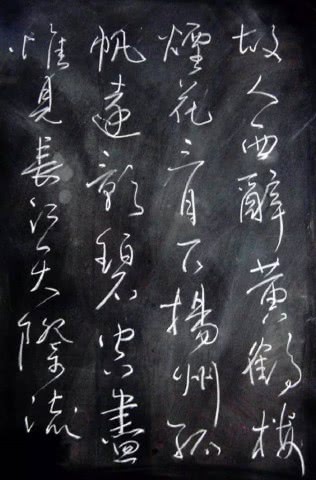 故人西辭黄鶴樓
煙花三月下揚州孤
帆遠影碧空盡
惟見長江天際流